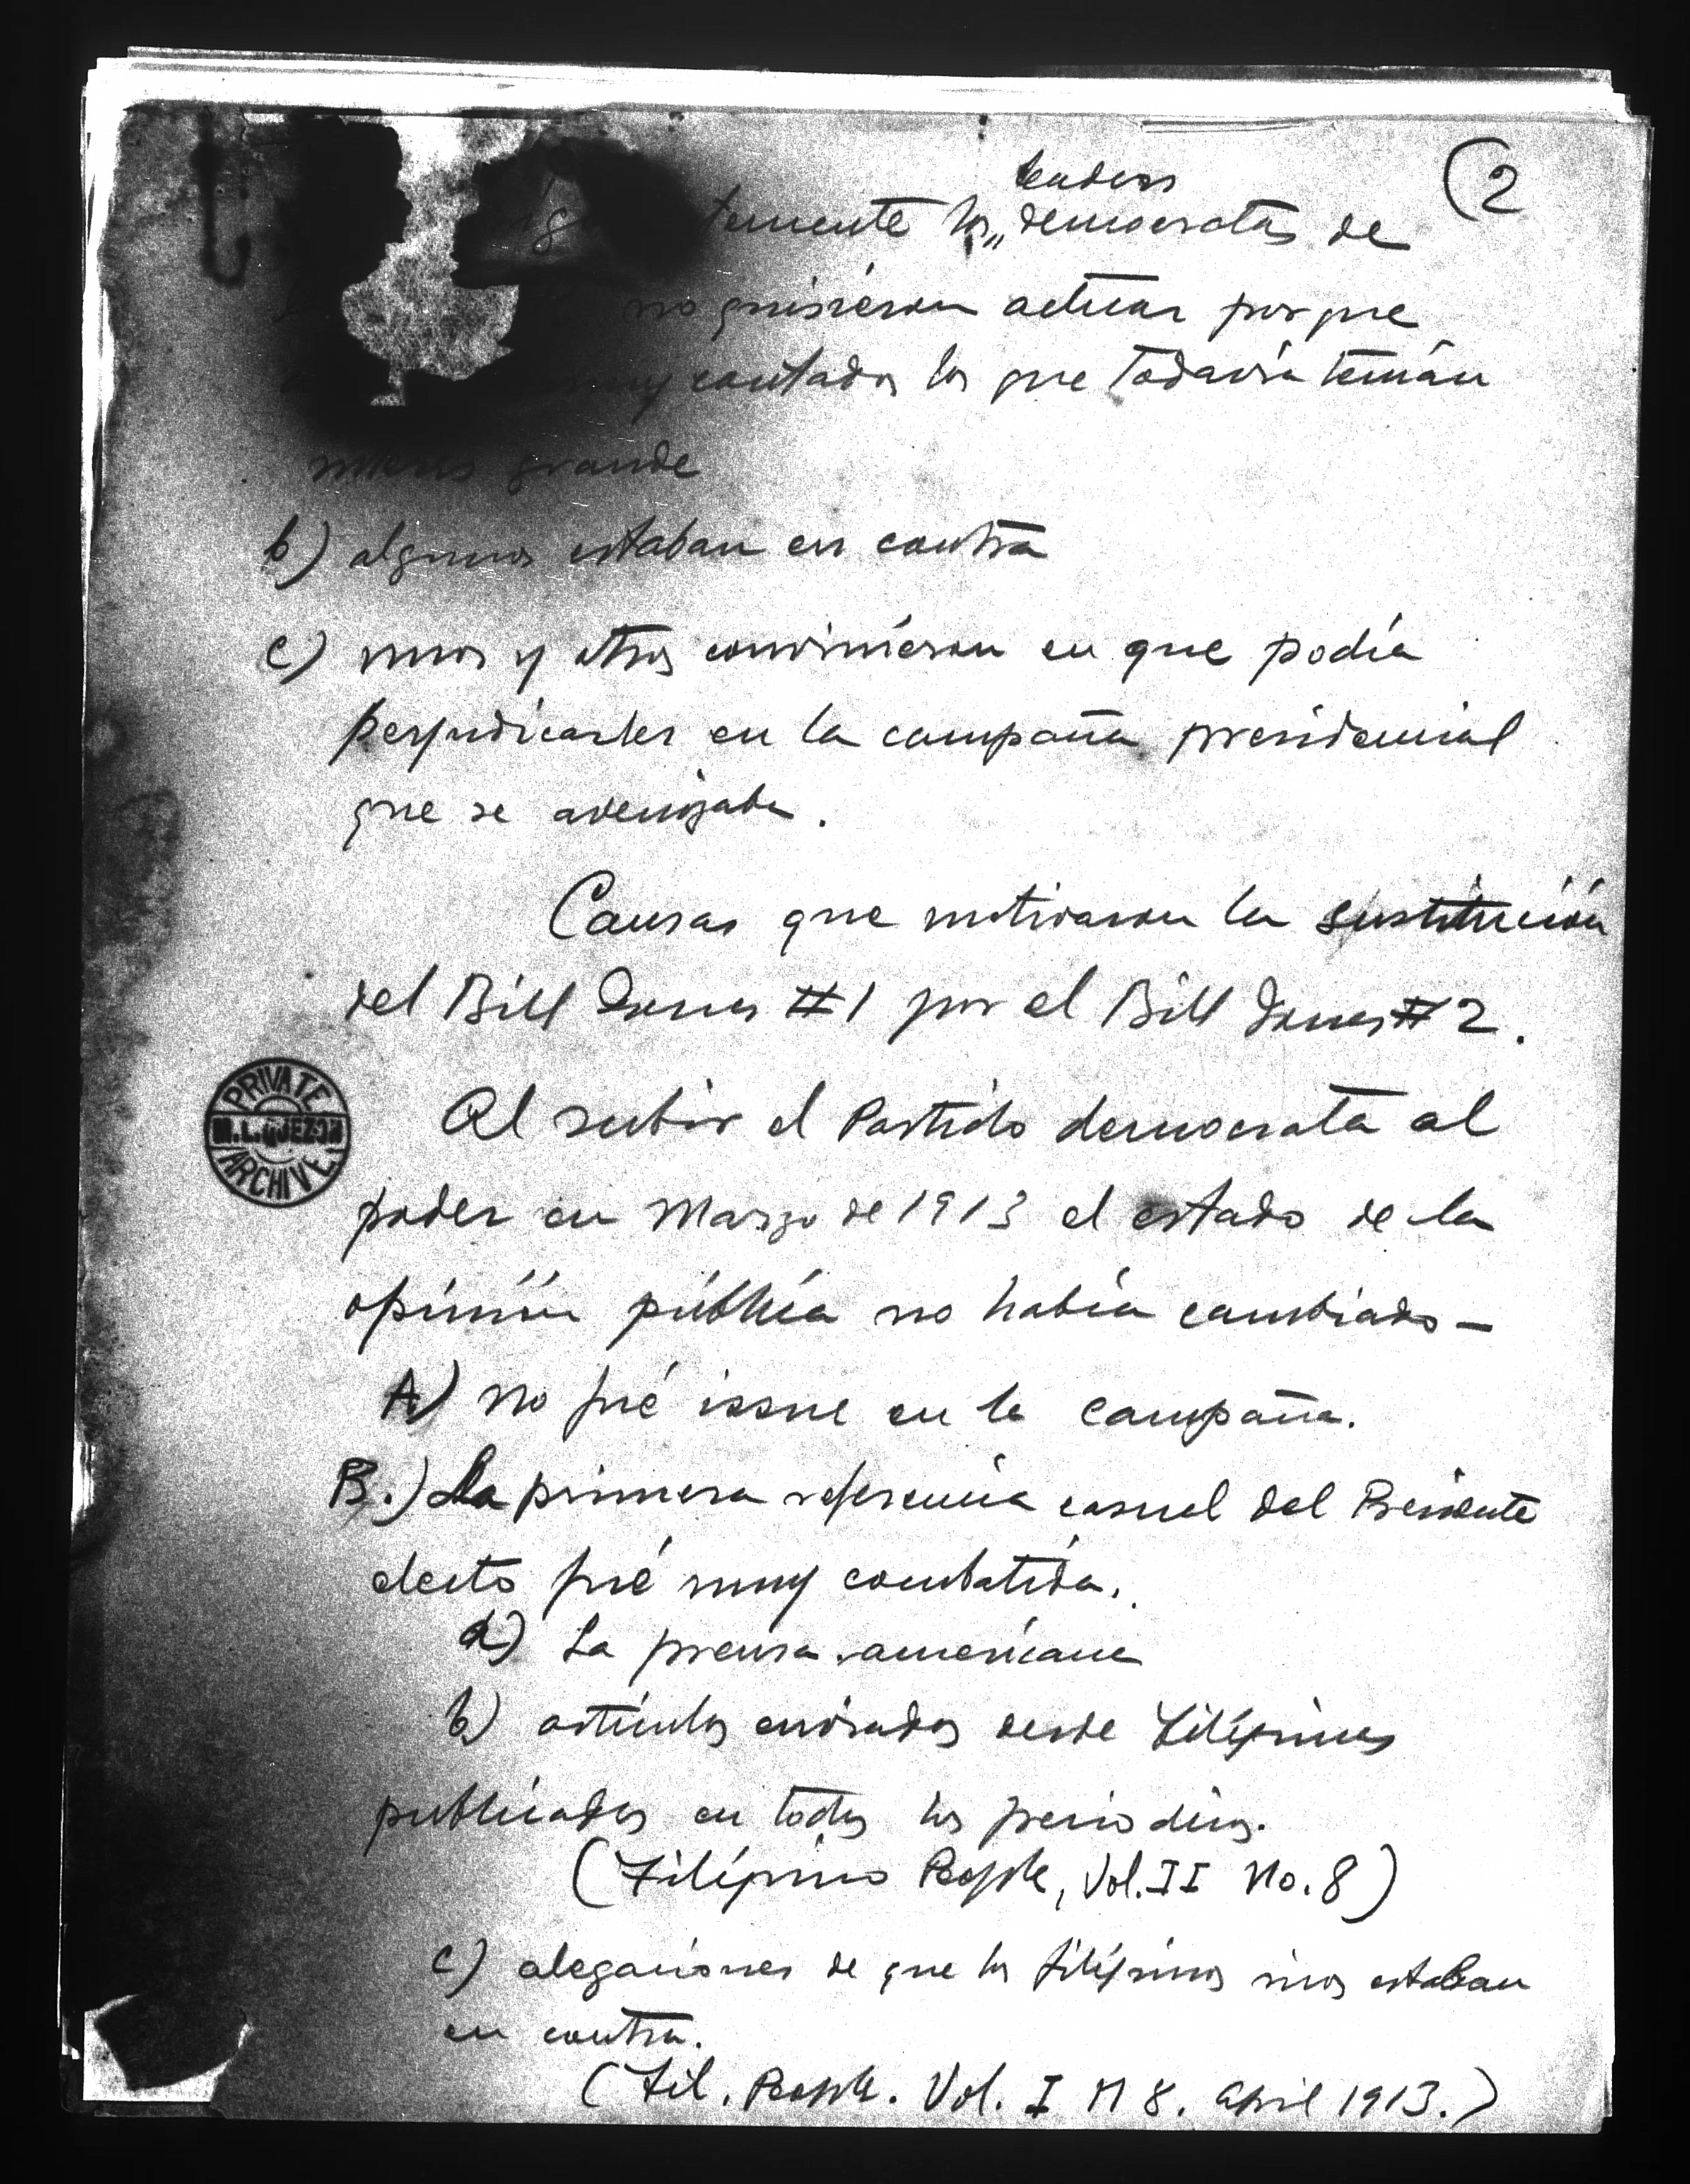 (2
leaders
temente los democratas de
no quisieron actuar porque
muy contados los que todavia tenían
interes grande
b) algunos estaban en contra
c) unos y otros convinieron en que podía
perjudicarles en la campaña presidencial
que se avecinaba.
Causas que motivaron la sustitución
del Bill Jones #1 por el Bill Jones #2.
Al subir el Partido democrata al
poder en Marzo de 1913 el estado de la
opinión pública no había cambiado —
A) No fué issue en la campaña.
B.) La primera referencia casual del Presidente
electo fué muy combatida.
a) La prensa americana
b) artículos enviados desde Filipinas
publicados en todos los periodicos.
(Filipino People, Vol. II No. 8)
c) alegaciones de que los filipinos ricos estaban
en contra.
(Fil. People. Vol. I N 8. April 1913.)
PRIVATE
M.L.QUEZON
ARCHIVE